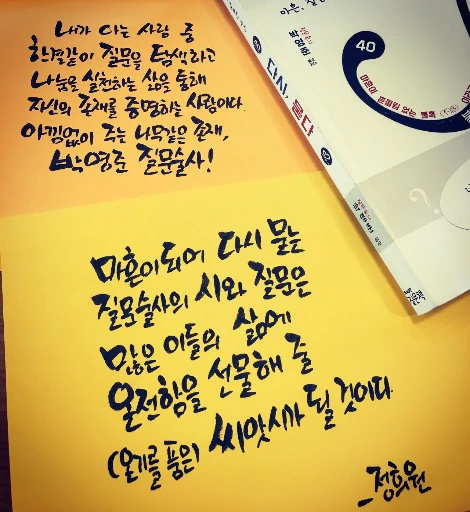 내가 아는 사람 중
한결같이 질문을 탐색하고
나눔을 실천하는 삶을 통해
자신의 존재를 증명하는 사람이다.
아낌없이 주는 나무같은 존재,
박영준 질문술사!
마흔이 되어 다시 묻는
질문술사의 시와 질문은
많은 이들의 삶에
온전함을 선물해 줄
(온기를 품은) 씨앗시가 될 것이다.
_정희원
다시, 묻다
박영준
40